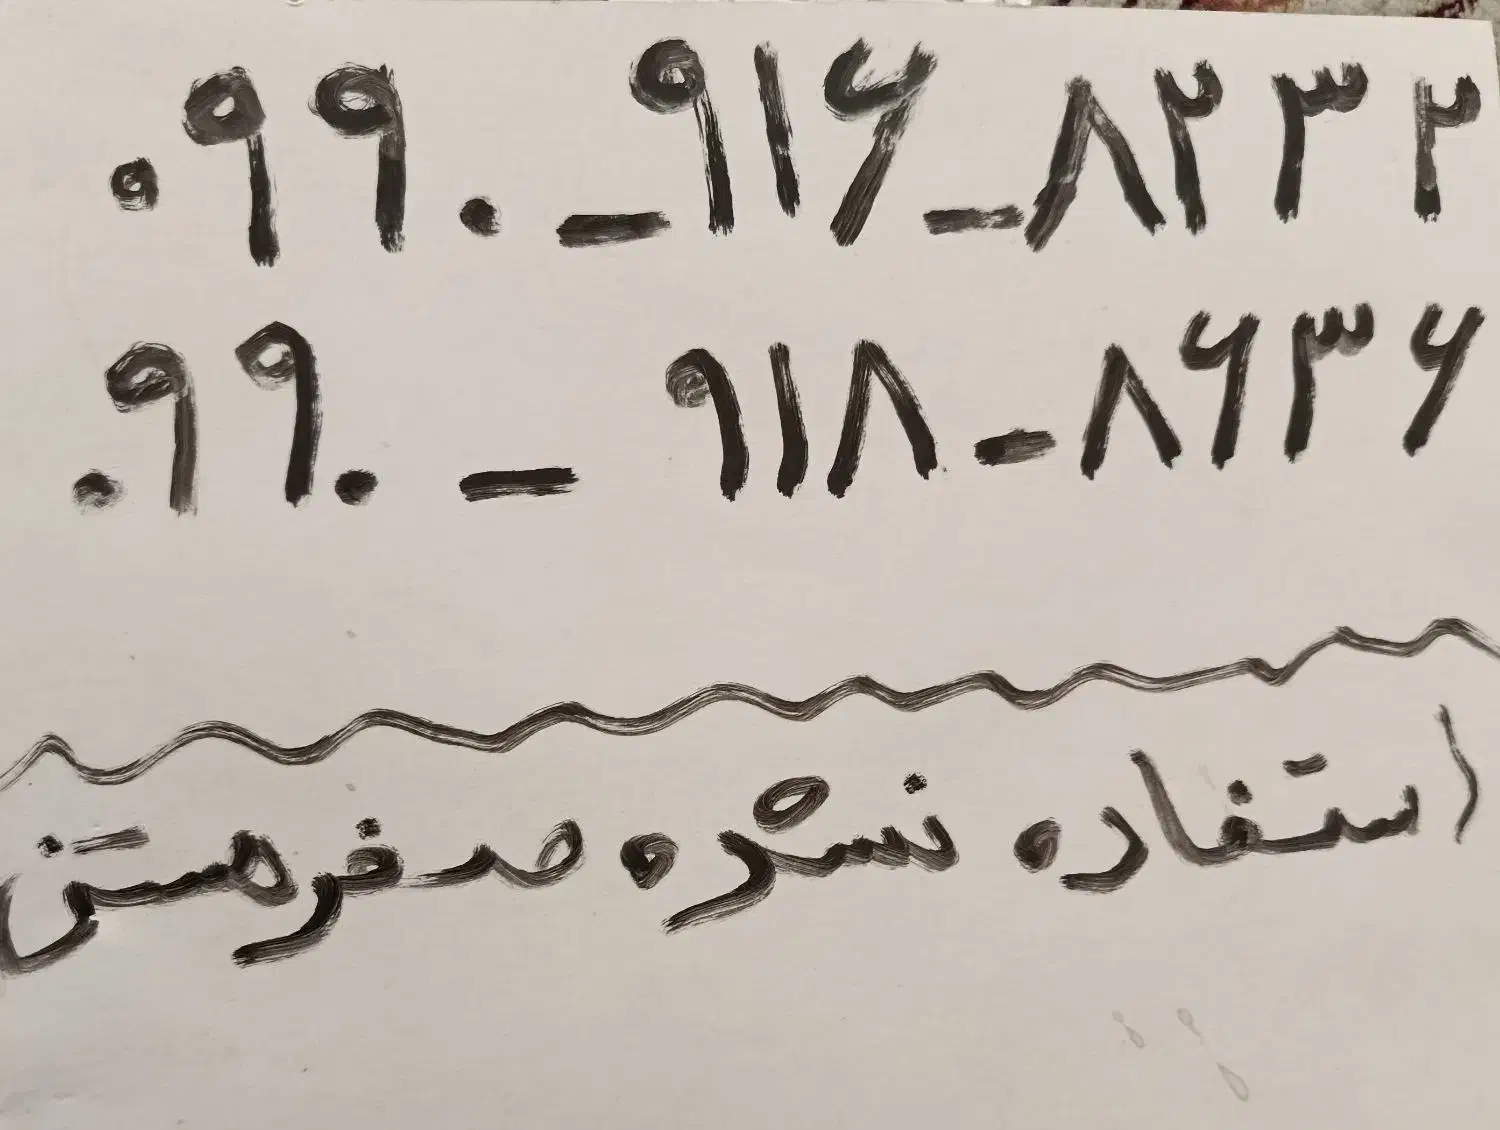 ۰۹۹۰_۹۱۶_۸۲۳۲
۰۹۹۰_۹۱۸_۸۶۳۶
استفاده نشده صفر هستن